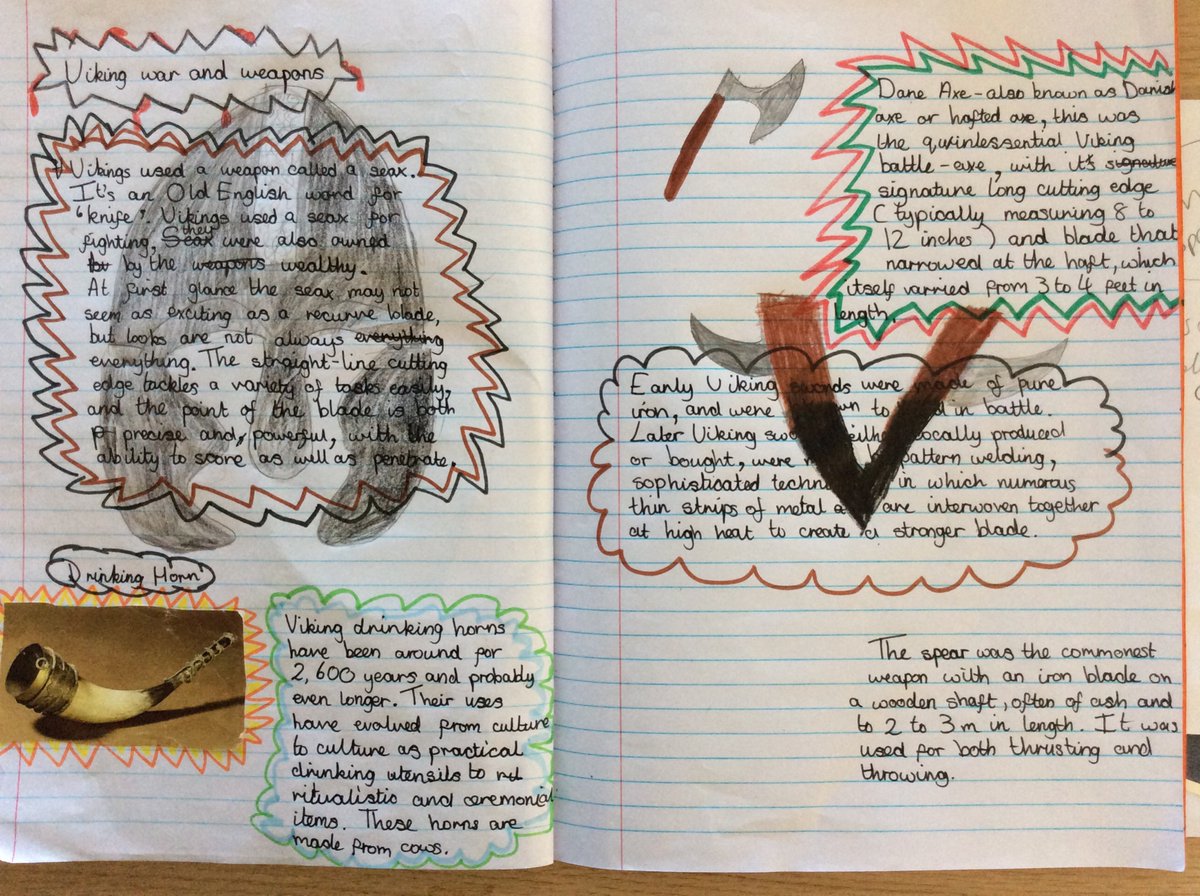 Viking war and weapons
Vikings used a weapon called a seax.
It's an Old English word for
"knife". Vikings used a seax for
fighting. Seax they were also owned
by the weapons wealthy.
At first glance the seax may not
seem as exciting as a recurve blade,
but looks are not always everything
everything. The straight-line cutting
edge tackles a variety of tasks easily,
and the point of the blade is both
precise and, powerful, with the
ability to score as well as penetrate.
Drinking Horn
Viking drinking horns
have been around for
2,600 years and probably
even longer. Their uses
have evolved from culture
to culture as practical
drinking utensils to
ritualistic and ceremonial
items. These horns are
made from cows.
Dane Axe - also known as Danish
axe or hafted axe, this was
the quxinlessential Viking
battle-axe, with it's signature
signature long cutting edge
(typically measuring 8 to
12 inches) and blade that
narrowed at the haft, which
itself varried from 3 to 4 feet in
length.
Early Viking swords were made of pure
iron, and were to in battle.
Later Viking locally produced
or bought, were pattern welding,
sophisticated in which numerous
thin strips of metal are interwoven together
at high heat to create a stronger blade.
The spear was the commonest
weapon with an iron blade on
a wooden shaft, often of ash and
to 2 to 3 m in length. It was
used for both thrusting and
throwing.